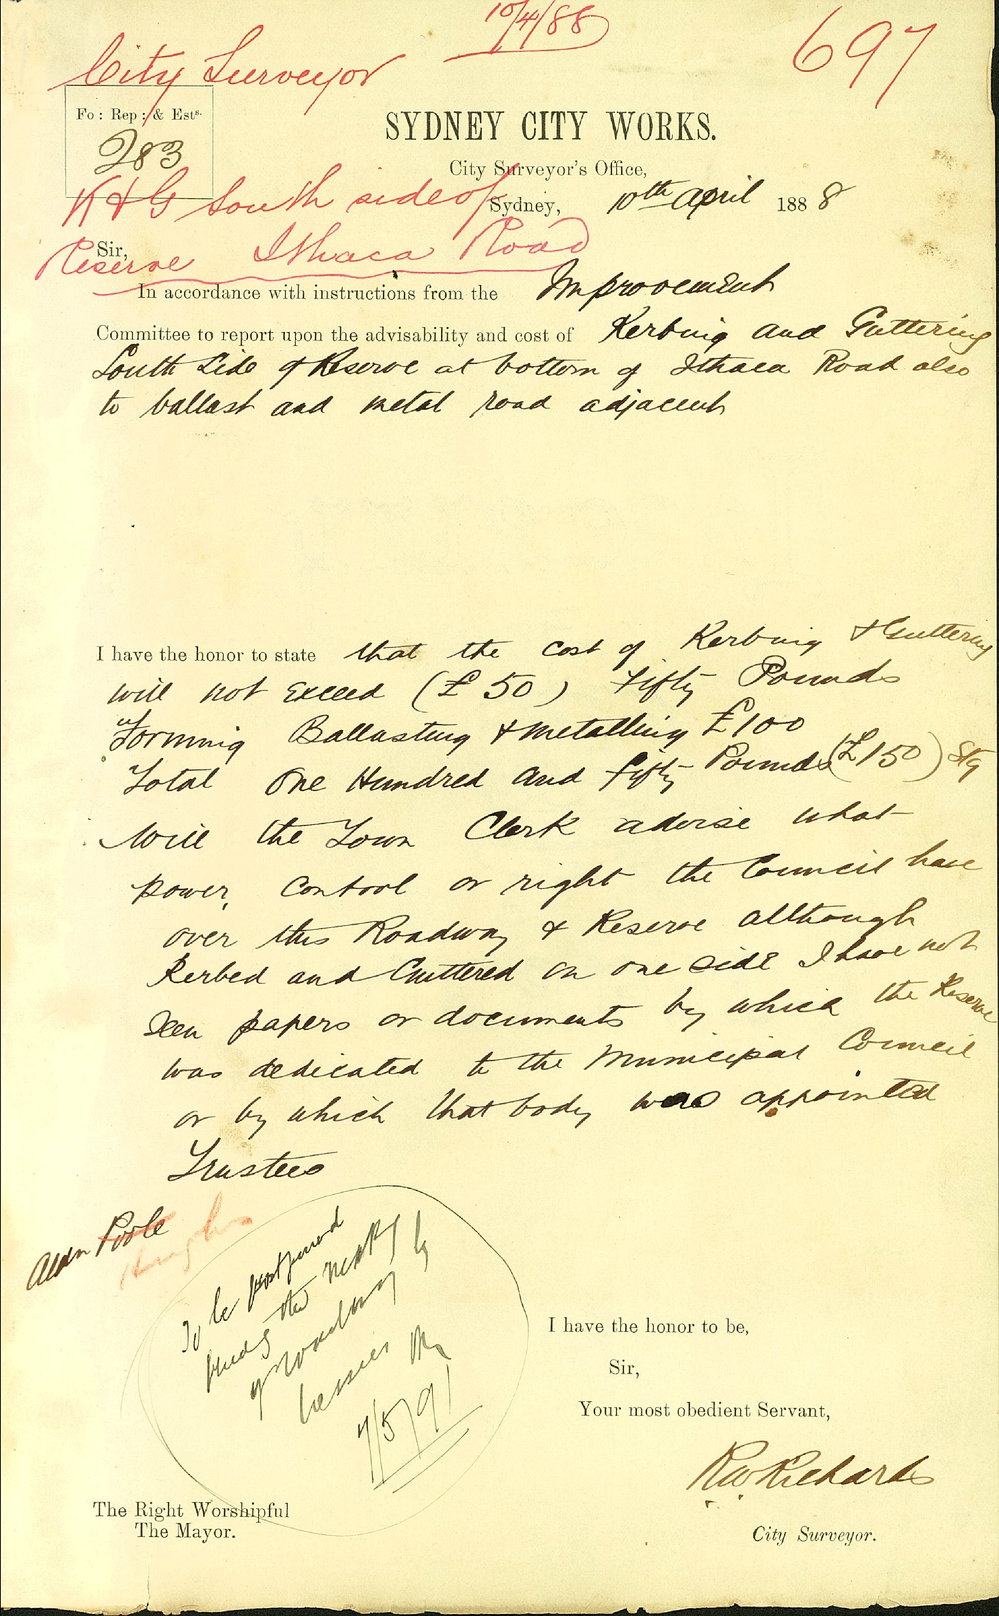 10/4/88
697
City Surveyor
Fo: Rep: & Ests.
283
SYDNEY CITY WORKS.
City Surveyor's Office,
K & G South side of
Sydney, 10th April 1888
Reserve Ithaca Road
Sir,
In accordance with instructions from the Improvement
Committee to report upon the advisability and cost of Kerbing and Guttering
South Side of Reserve at bottom of Ithaca Road also
to ballast and metal road adjacent
I have the honor to state that the cost of Kerbing & Guttering
will not exceed (£50) Fifty Pounds
Forming Ballasting & Metalling £100
Total One Hundred and fifty Pounds (£150) Stg
Will the Town Clerk advise what
power, control or right the Council have
over this Roadway & Reserve although
Kerbed and Guttered on one side I have not
seen papers or documents by which the Reserve
was dedicated to the Municipal Council
or by which that body was appointed
Trustees
Aldn Poole
Hughes
To be postponed
pending the
of roadway by
7/5/91
I have the honor to be,
Sir,
Your most obedient Servant,
RW Richards
The Right Worshipful
The Mayor.
City Surveyor.